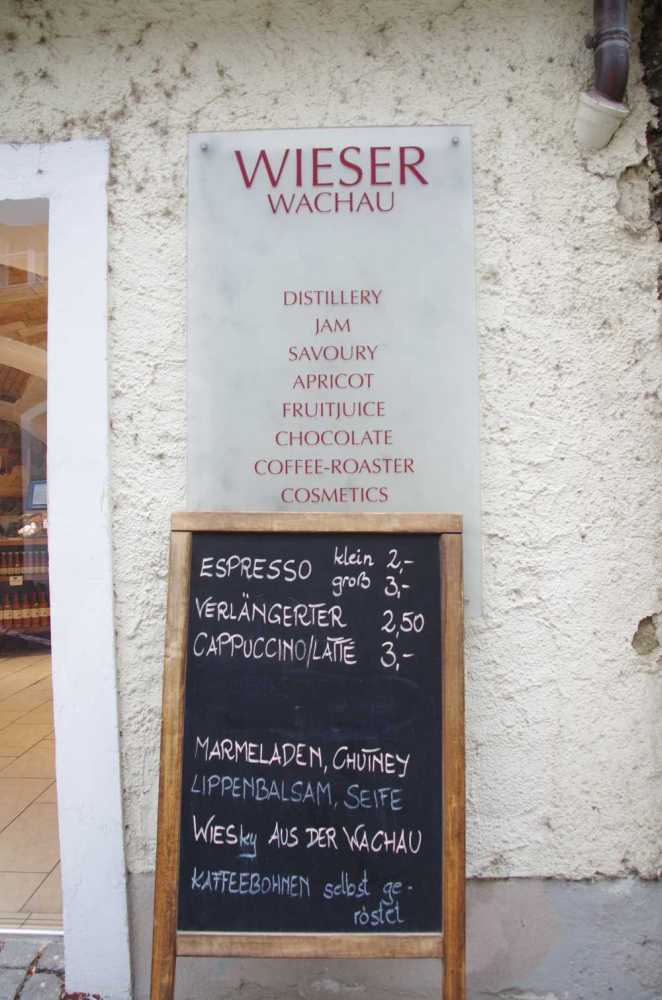 WIESER
WACHAU
DISTILLERY
JAM
SAVOURY
APRICOT
FRUITJUICE
CHOCOLATE
COFFEE-ROASTER
COSMETICS
ESPRESSO klein 2,-
groß 3,-
VERLÄNGERTER 2,50
CAPPUCCINO/LATTE 3,-
MARMELADEN, CHUTNEY
LIPPENBALSAM, SEIFE
WIESky AUS DER WACHAU
KAFFEEBOHNEN selbst ge-
röstet